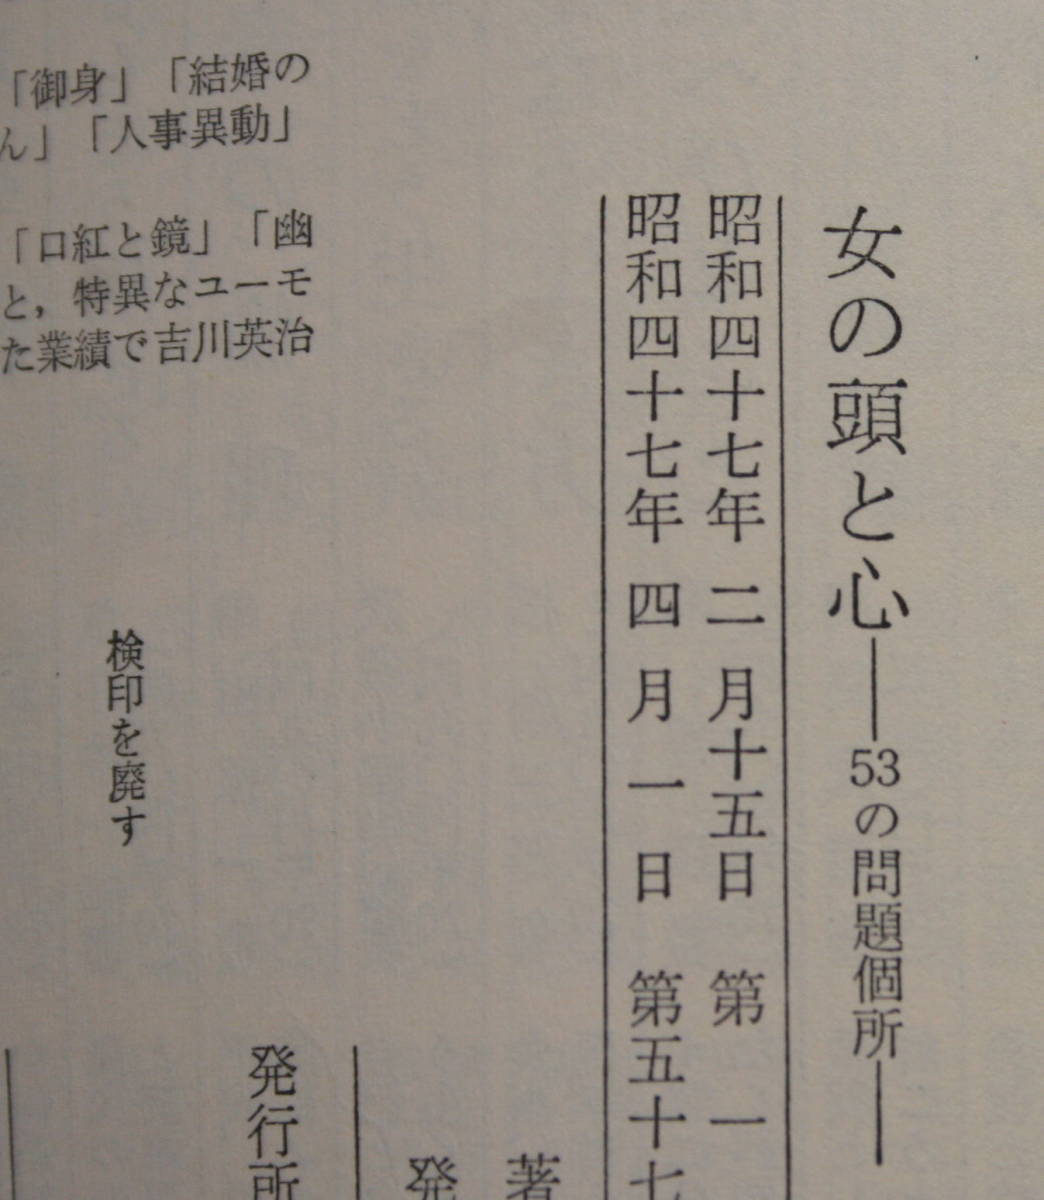 女の頭と心──53の問題個所──
昭和四十七年 二 月十五日 第 一
昭和四十七年 四 月 一 日 第五十七
著
発
発行所
検印を廃す
「御身」「結婚の
ん」「人事異動」
「口紅と鏡」「幽
と，特異なユーモ
た業績で吉川英治